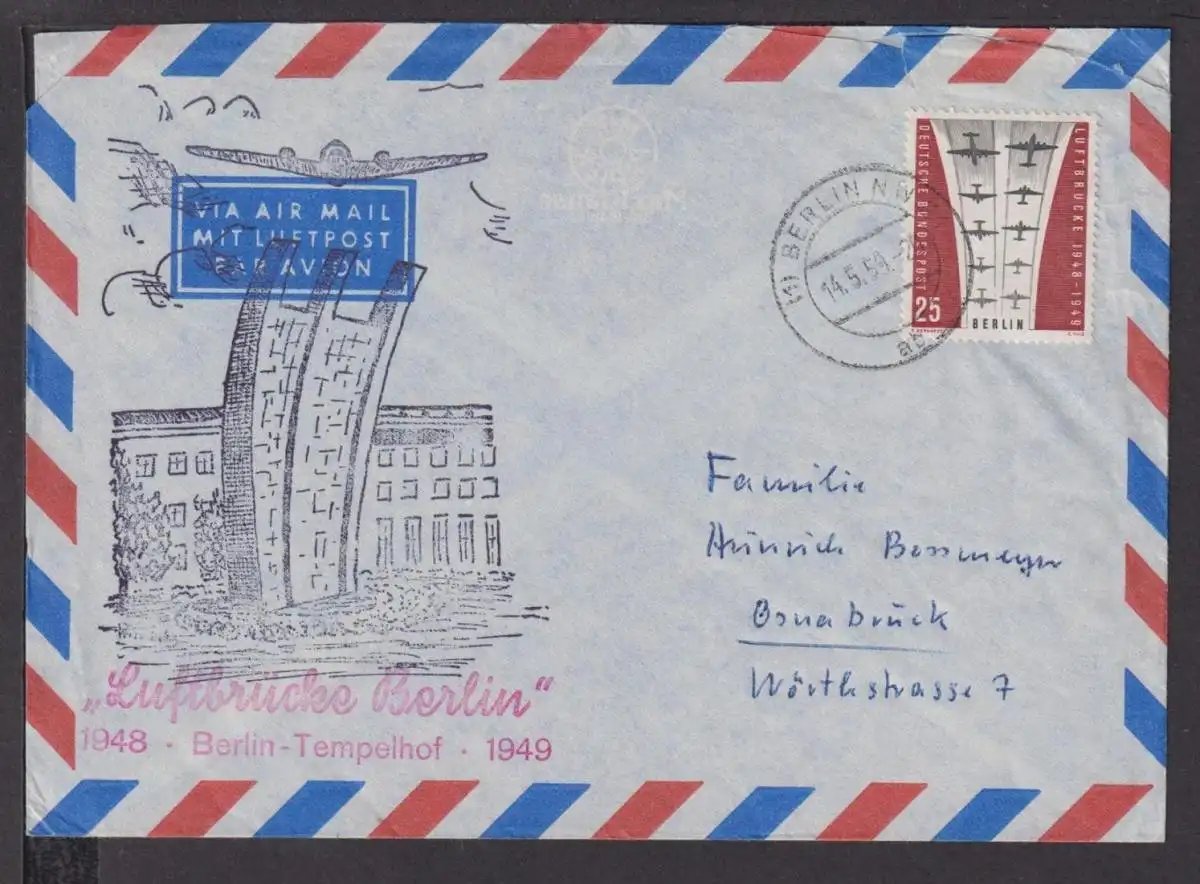 VIA AIR MAIL
MIT LUFTPOST
PAR AVION
(1) BERLIN N
14.5.59.-2
ab
DEUTSCHE BUNDESPOST
LUFTBRÜCKE 1948-1949
25
BERLIN
Familie
Heinrich Bossmeyer
Osnabrück
Wörthstrasse 7
„Luftbrücke Berlin“
1948 · Berlin-Tempelhof · 1949